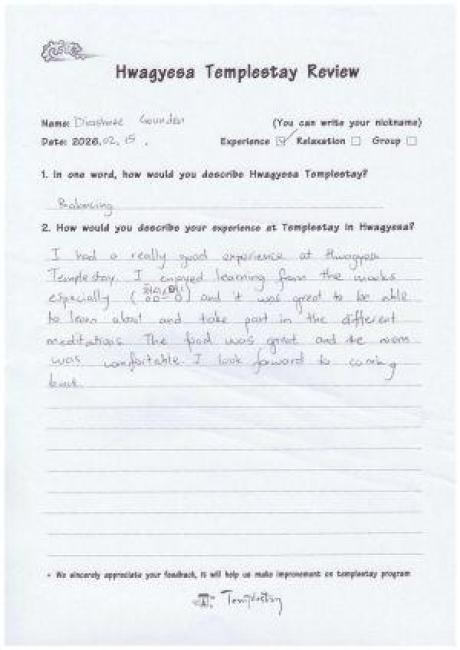 Hwagyesa Templestay Review
Name: Gounden (You can write your nickname)
Date: 2026.02.15. Experience ☑ Relaxation ☐ Group ☐
1. In one word, how would you describe Hwagyesa Templestay?
Balancing
2. How would you describe your experience at Templestay in Hwagyesa?
I had a really good experience at Hwagyesa
Templestay. I enjoyed learning from the monks
especially ( ) and it was great to be able
to learn about and take part in the different
meditations. The food was great and the room
was comfortable. I look forward to coming
back.
* We sincerely appreciate your feedback, it will help us make improvement on templestay program
Templestay